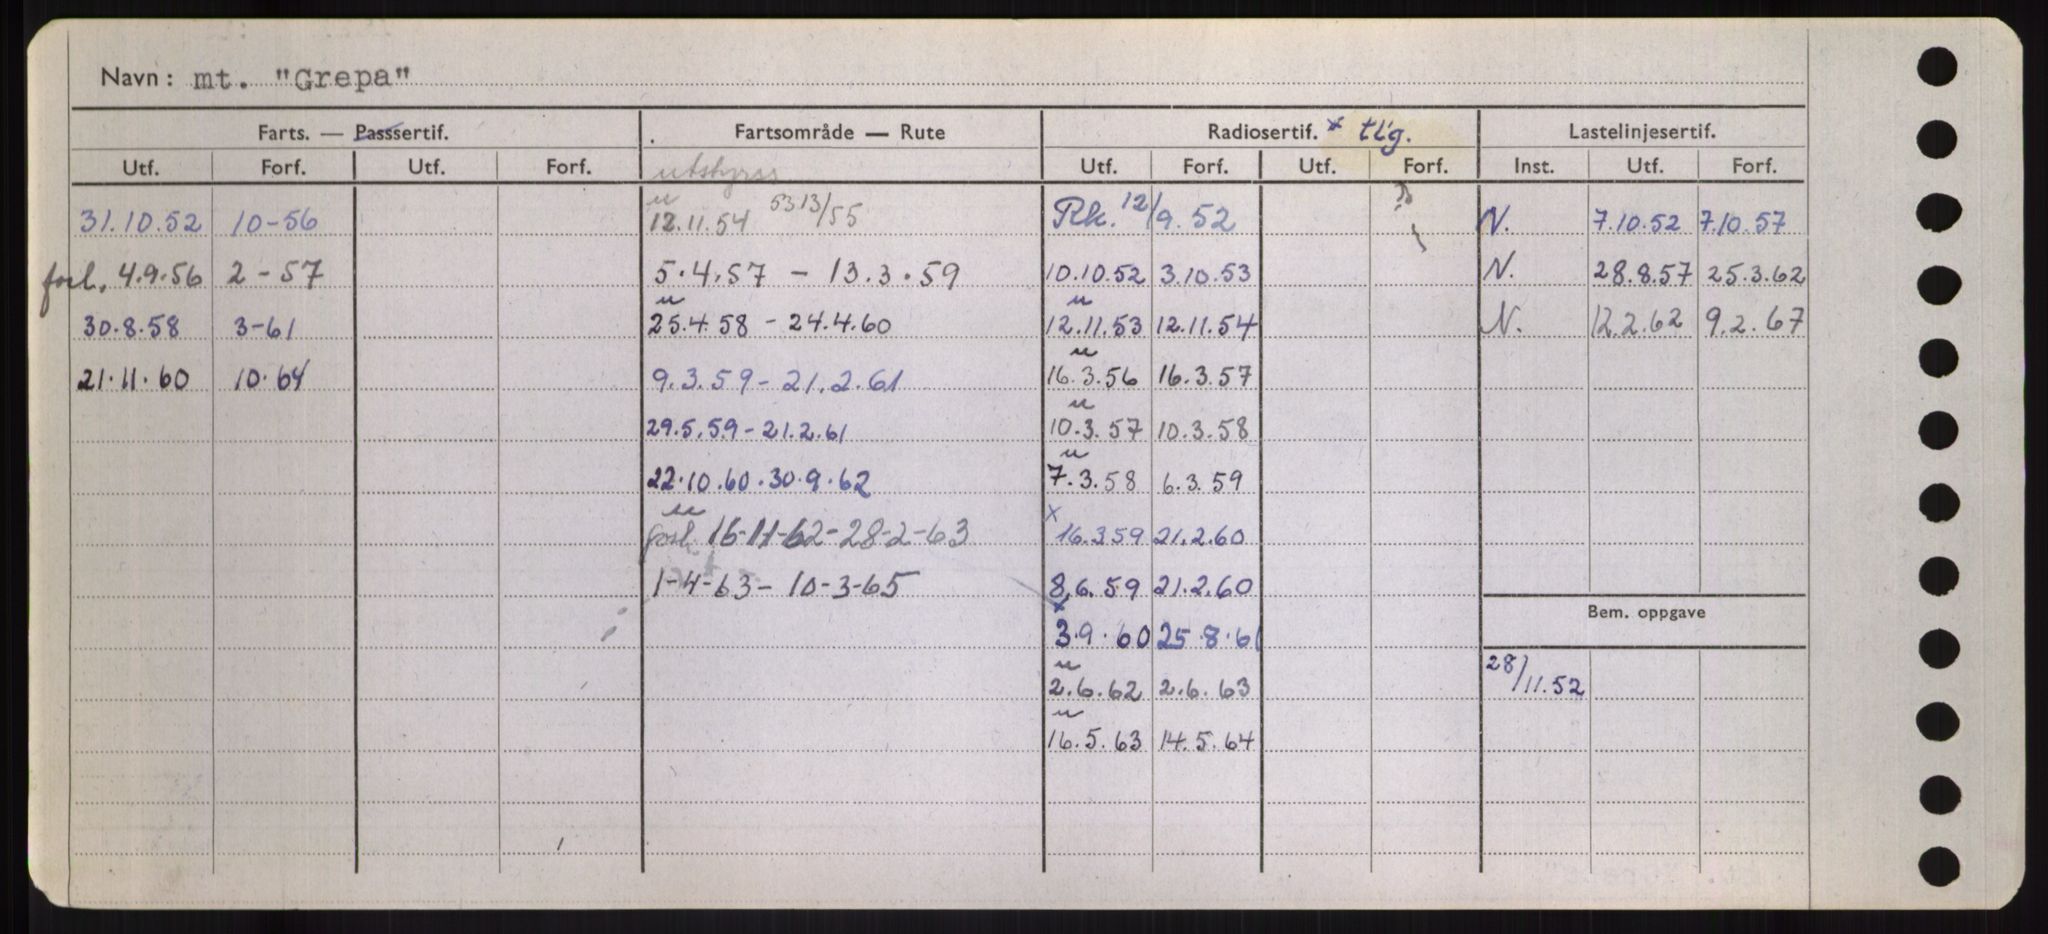 Navn: mt. "Grepa"
Farts. — Passsertif. Fartsområde — Rute Radiosertif. x tlg. Lastelinjesertif.
Utf. Forf. Utf. Forf. utstyrss Utf. Forf. Utf. Forf. Inst. Utf. Forf.
31.10.52 10-56 " 12.11.54 13/55 Rk. 12/9.52 N. 7.10.52 7.10.57
forl. 4.9.56 2-57 5.4.57 - 13.3.59 10.10.52 3.10.53 N. 28.8.57 25.3.62
30.8.58 3-61 " 25.4.58 - 24.4.60 " 12.11.53 12.11.54 N. 12.2.62 9.2.67
21.11.60 10.64 9.3.59 - 21.2.61 " 16.3.56 16.3.57
29.5.59 - 21.2.61 " 10.3.57 10.3.58
22.10.60. 30.9.62 " 7.3.58 6.3.59
" forl. 16-11-62-28-2-63 x 16.3.59 21.2.60
1-4-63 - 10-3-65 8.6.59 21.2.60
Bem. oppgave
x 3.9.60 25.8.61
" 2.6.62 2.6.63 28/11.52
" 16.5.63 14.5.64